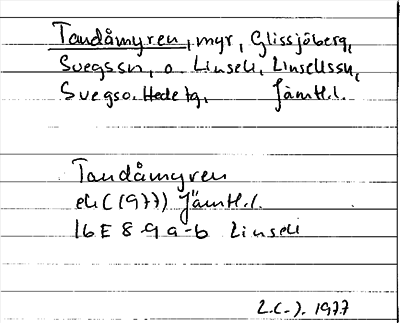 Tandåmyren, myr, Glissjöberg,
Svegssn, o. Linsell, Linsellssn,
Svegs o. Hede tg. Jämtl.l.
Tandåmyren
ek (1977) Jämtl.l.
16E 8-9 a-b Linsell
1977